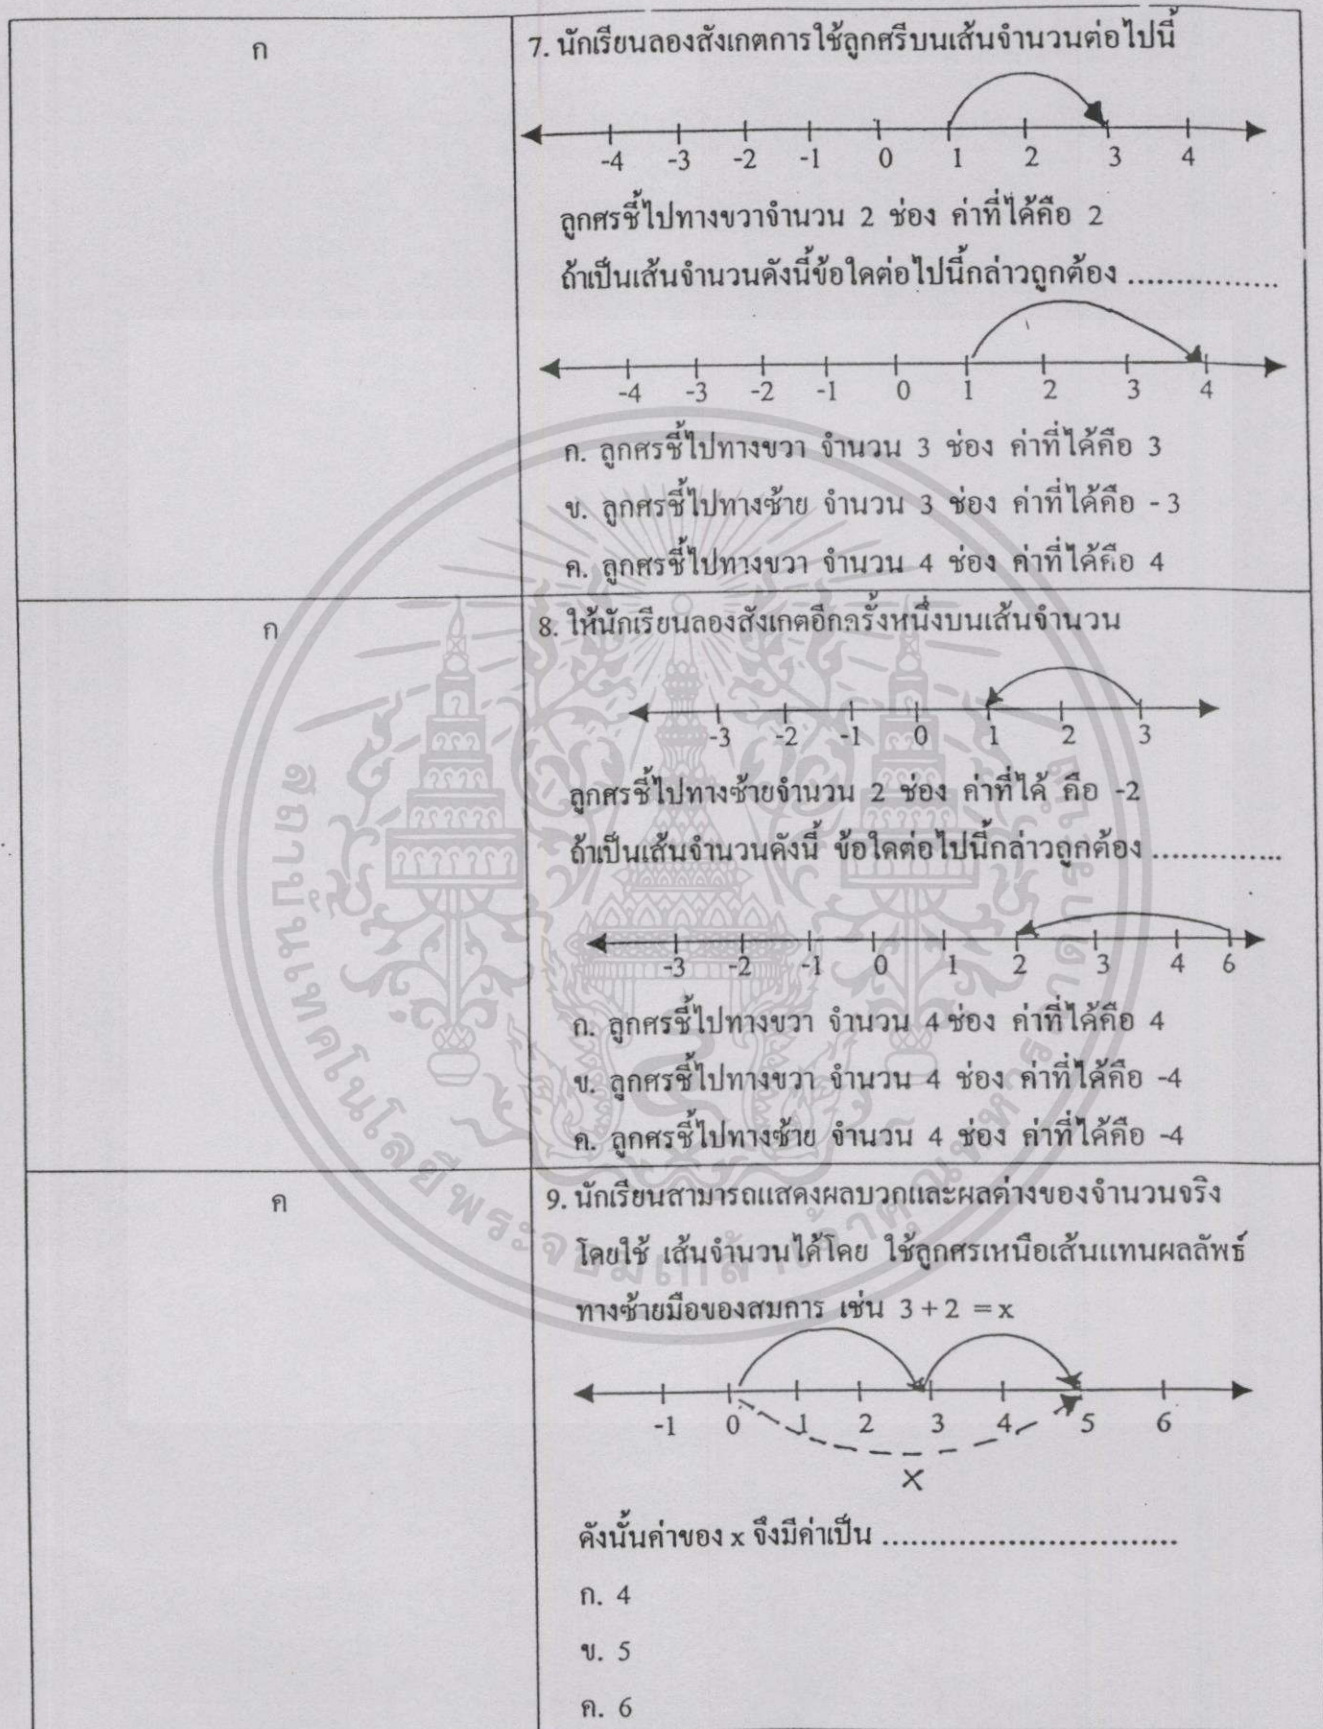 ก
7. นักเรียนลองสังเกตการใช้ลูกศรีบนเส้นจำนวนต่อไปนี้
-4 -3 -2 -1 0 1 2 3 4
ลูกศรชี้ไปทางขวาจำนวน 2 ช่อง ค่าที่ได้คือ 2
ถ้าเป็นเส้นจำนวนดังนี้ข้อใดต่อไปนี้กล่าวถูกต้อง ................
-4 -3 -2 -1 0 1 2 3 4
ก. ลูกศรชี้ไปทางขวา จำนวน 3 ช่อง ค่าที่ได้คือ 3
ข. ลูกศรชี้ไปทางซ้าย จำนวน 3 ช่อง ค่าที่ได้คือ - 3
ค. ลูกศรชี้ไปทางขวา จำนวน 4 ช่อง ค่าที่ได้คือ 4
ก
8. ให้นักเรียนลองสังเกตอีกครั้งหนึ่งบนเส้นจำนวน
-3 -2 -1 0 1 2 3
ลูกศรชี้ไปทางซ้ายจำนวน 2 ช่อง ค่าที่ได้ คือ -2
ถ้าเป็นเส้นจำนวนดังนี้ ข้อใดต่อไปนี้กล่าวถูกต้อง ..............
-3 -2 -1 0 1 2 3 4 6
ก. ลูกศรชี้ไปทางขวา จำนวน 4 ช่อง ค่าที่ได้คือ 4
ข. ลูกศรชี้ไปทางขวา จำนวน 4 ช่อง ค่าที่ได้คือ -4
ค. ลูกศรชี้ไปทางซ้าย จำนวน 4 ช่อง ค่าที่ได้คือ -4
ค
9. นักเรียนสามารถแสดงผลบวกและผลต่างของจำนวนจริง
โดยใช้ เส้นจำนวนได้โดย ใช้ลูกศรเหนือเส้นแทนผลลัพธ์
ทางซ้ายมือของสมการ เช่น 3 + 2 = x
-1 0 1 2 3 4 5 6
x
ดังนั้นค่าของ x จึงมีค่าเป็น ...............................
ก. 4
ข. 5
ค. 6
สถาบันเทคโนโลยีพระจอมเกล้าเจ้าคุณทหารลาดกระบัง